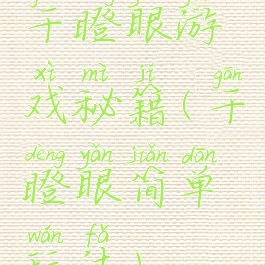 干瞪眼游
xì mì jí gān
戏秘籍(干
dèng yǎn jiǎn dān
瞪眼简单
wán fǎ
玩法)